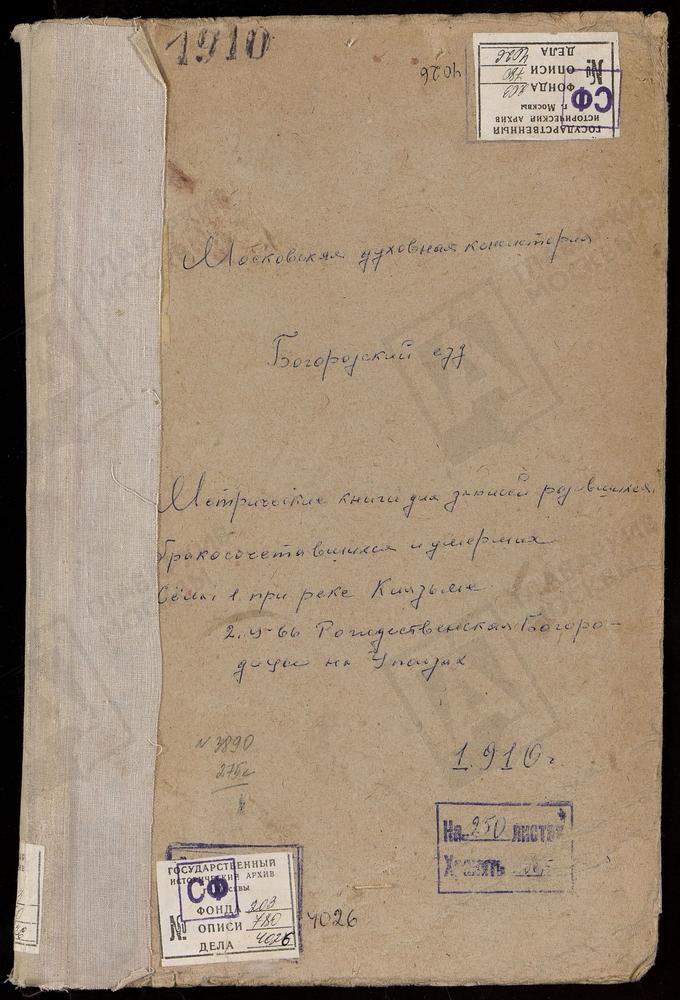 1910
4026
ГОСУДАРСТВЕННЫЙ
ИСТОРИЧЕСКИЙ АРХИВ
г. Москвы
№
ФОНДА 203
ОПИСИ 780
ДЕЛА 4026
СФ
Московская духовная консистория
Богородский уезд
Метрические книги для записей родившихся
бракосочетавшихся и умерших
Сёла: 1. при реке Клязьме
2. ц-вь Рождественская Богоро-
дицы на
N 3890
275л
1910 г.
На 250 листах
Хранить
ГОСУДАРСТВЕННЫЙ
ИСТОРИЧЕСКИЙ АРХИВ
г. Москвы
СФ
№
ФОНДА 203
ОПИСИ 780
ДЕЛА 4026
4026